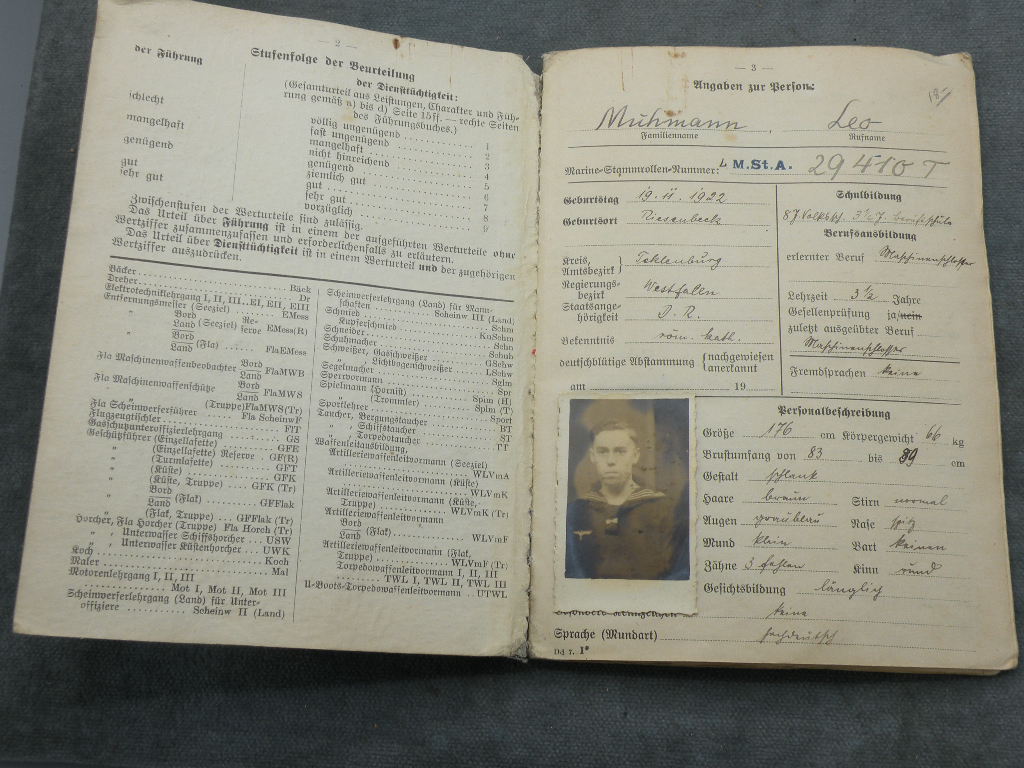 — 2 —
Stufenfolge der Beurteilung
der Führung
der Diensttüchtigkeit:
(Gesamturteil aus Leistungen, Charakter und Füh-
rung gemäß a) bis d) Seite 15 ff. — rechte Seiten
des Führungsbuches.)
schlecht
völlig ungenügend 1
fast ungenügend 2
mangelhaft
mangelhaft 3
nicht hinreichend 4
genügend
genügend 5
ziemlich gut 6
gut
gut 7
sehr gut
sehr gut 8
vorzüglich 9
Zwischenstufen der Werturteile sind zulässig.
Das Urteil über Führung ist in einem der ausgeführten Werturteile ohne
Wertziffer zusammenzufassen und erforderlichenfalls zu erläutern.
Das Urteil über Diensttüchtigkeit ist in einem Werturteil und der zugehörigen
Wertziffer auszudrücken.
Bäcker Bäck
Dreher Dr
Elektrotechniklehrgang I, II, III .. EI, EII, EIII
Entfernungsmesser (Seeziel) EMess
" Bord Re-
Land (Seeziel) serve EMess(R)
" Bord
Land (Fla) FlaEMess
Fla Maschinenwaffenbeobachter Bord
Land FlaMWB
Fla Maschinenwaffenschütze Bord
Land FlaMWS
" (Truppe) FlaMWS(Tr)
Fla Scheinwerferführer Fla ScheinwF
Flugzeugtischler FlT
Gasschutzunteroffizierlehrgang GS
Geschützführer (Einzellafette) GFE
" (Einzellafette) Reserve GF(R)
" (Turmlafette) GFT
" (Küste) GFK
" (Küste, Truppe) GFK (Tr)
" Bord
Land (Flak) GFFlak
" (Flak, Truppe) GFFlak (Tr)
Horcher, Fla Horcher (Truppe) Fla Horch (Tr)
" , Unterwasser Schiffshorcher USW
" , Unterwasser Küstenhorcher UWK
Koch Koch
Maler Mal
Motorenlehrgang I, II, III
Mot I, Mot II, Mot III
Scheinwerferlehrgang (Land) für Unter-
offiziere Scheinw II (Land)
Scheinwerferlehrgang (Land) für Mann-
schaften Scheinw III (Land)
Schmied Schm
Kupferschmied KuSchm
Schneider Schn
Schuhmacher Schuh
Schweißer, Gasschweißer GSchw
" Lichtbogenschweißer LSchw
Segelmacher Sglm
Sperrvormann Spr
Spielmann (Hornist) Splm (H)
" (Trommler) Splm (T)
Sportlehrer Sport
Taucher, Bergungstaucher BT
" , Schiffstaucher ST
" , Torpedotaucher TT
Waffenleitausbildung,
Artilleriewaffenleitvormann (Seeziel)
WLVmA
Artilleriewaffenleitvormann (Küste)
WLVmK
Artilleriewaffenleitvormann (Küste,
Truppe) WLVmK (Tr)
Artilleriewaffenleitvormann
Bord
Land (Flak) WLVmF
Artilleriewaffenleitvormann (Flak,
Truppe) WLVmF (Tr)
Torpedowaffenleitvormann I, II, III
TWL I, TWL II, TWL III
U-Boots-Torpedowaffenleitvormann UTWL
— 3 —
Angaben zur Person:
Muhmann, Leo
Familienname Rufname
Marine-Stammrollen-Nummer: L M.St.A. 29410 T
Geburtstag 19.11.1922
Geburtsort Riesenbeck
Kreis, Amtsbezirk } Tecklenburg
Regierungs-
bezirk Westfalen
Staatsange-
hörigkeit D. R.
Bekenntnis röm. kath.
deutschblütige Abstammung { nachgewiesen
anerkannt
am 19
Schulbildung
8 J. Volkssch. 3½ J. Berufsschule
Berufsausbildung
erlernter Beruf Maschinenschlosser
Lehrzeit 3½ Jahre
Gesellenprüfung ja/nein
zuletzt ausgeübter Beruf
Maschinenschlosser
Fremdsprachen keine
Personalbeschreibung
Größe 176 cm Körpergewicht 66 kg
Brustumfang von 83 bis 89 cm
Gestalt schlank
Haare braun Stirn normal
Augen graublau Nase spitz
Mund klein Bart keinen
Zähne 3 fehlen Kinn rund
Gesichtsbildung länglich
keine
Sprache (Mundart) hochdeutsch
Dd r. 1*